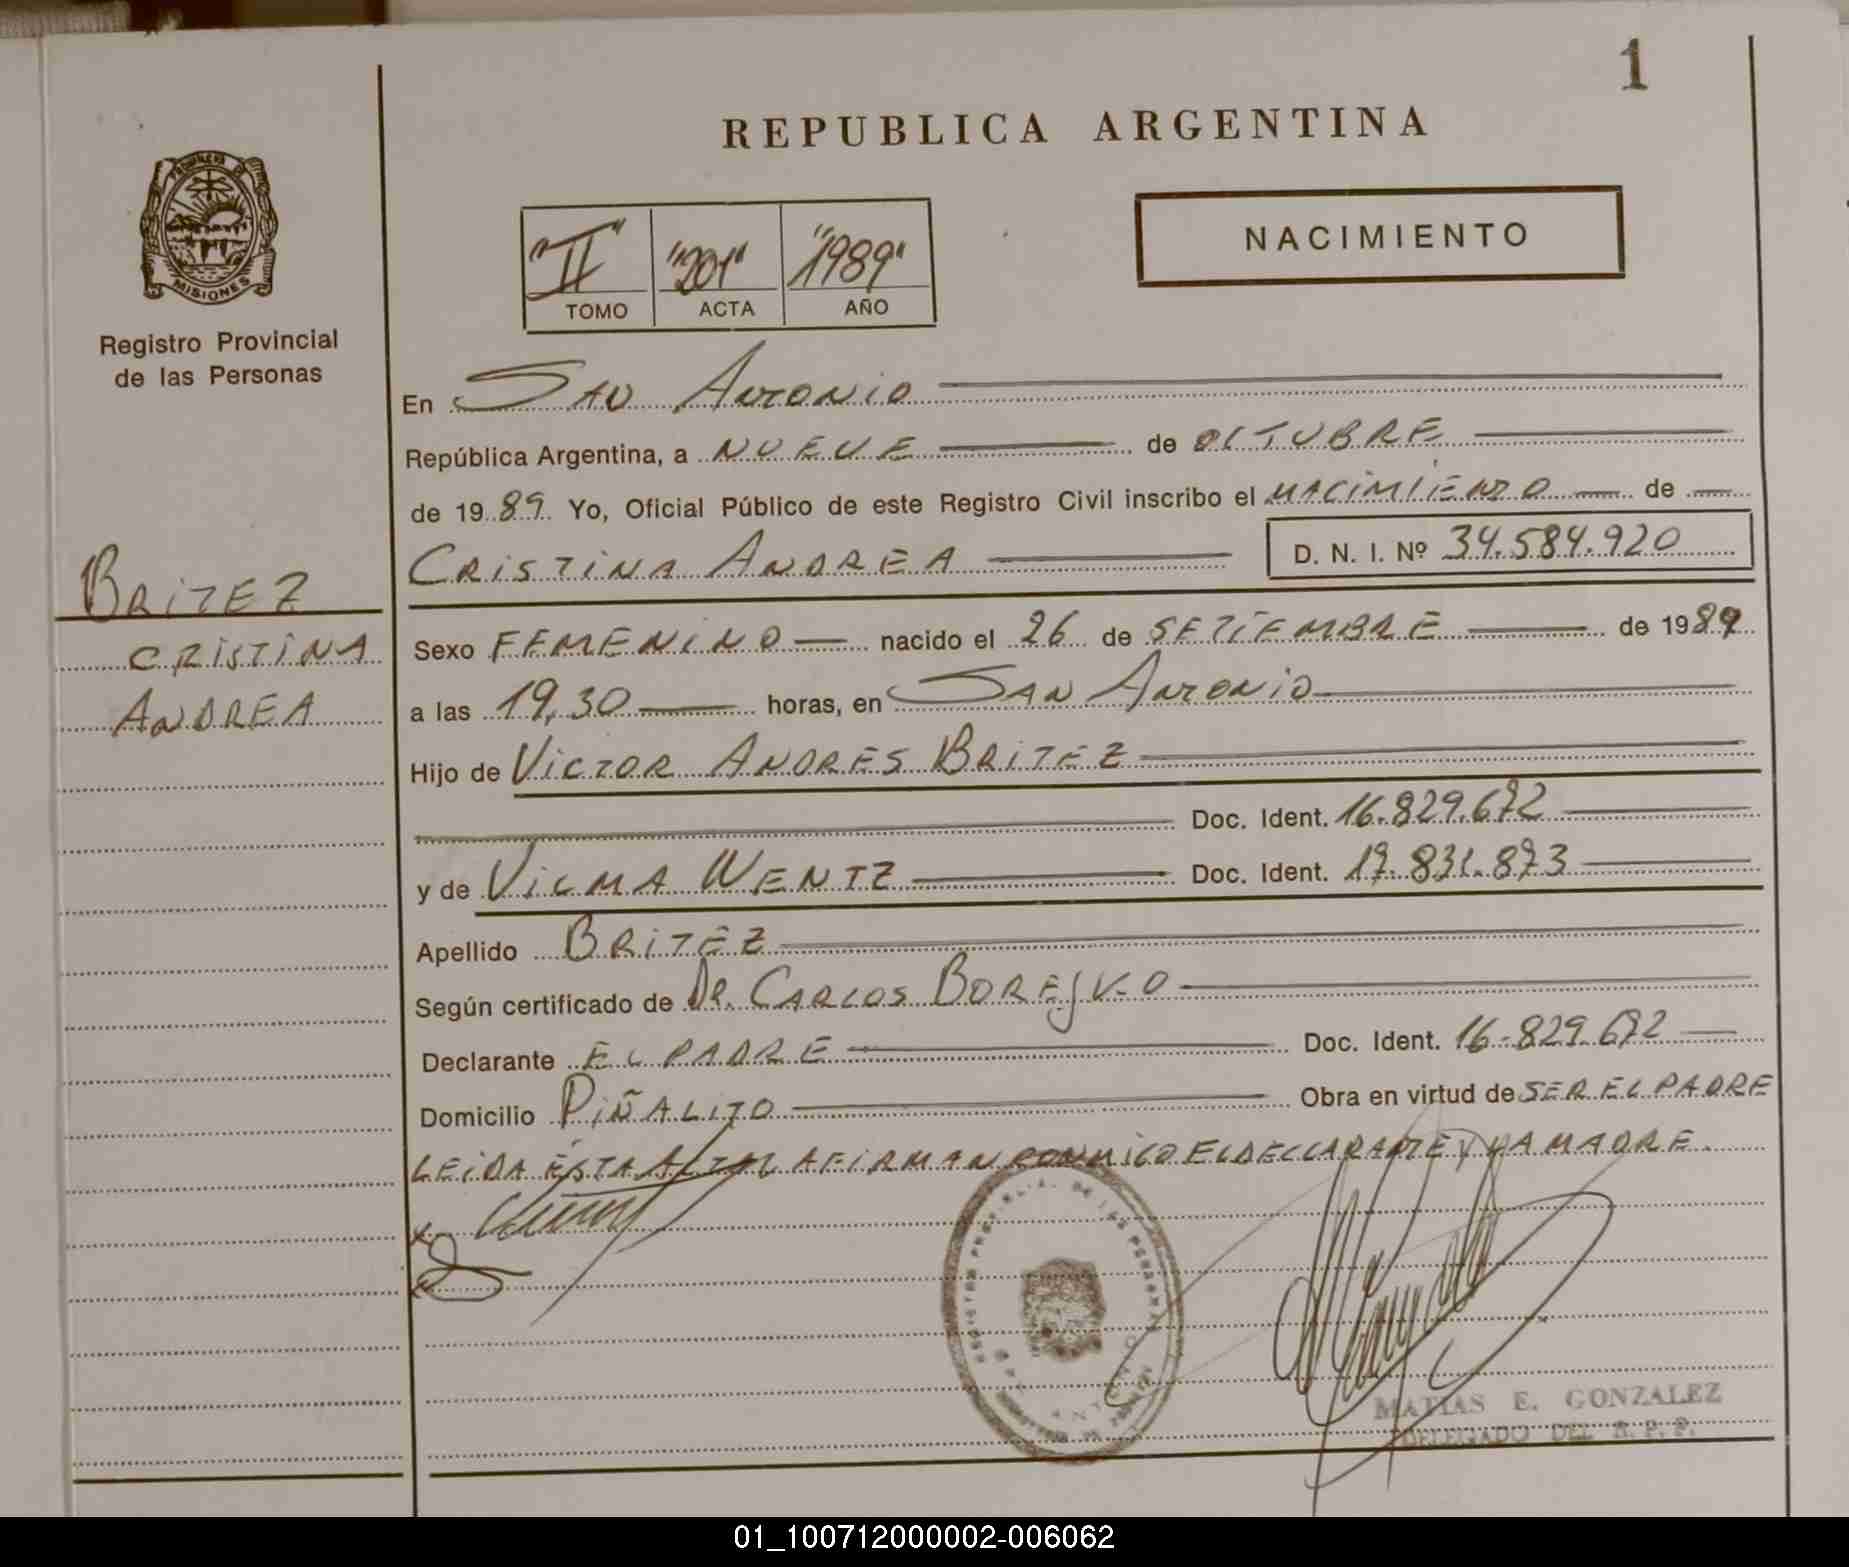 1
REPUBLICA ARGENTINA
PROVINCIA DE
MISIONES
Registro Provincial
de las Personas
"II" "201" "1989"
TOMO ACTA AÑO
NACIMIENTO
En SAN ANTONIO
República Argentina, a NUEVE de OCTUBRE
de 1989 Yo, Oficial Público de este Registro Civil inscribo el NACIMIENTO de
CRISTINA ANDREA D. N. I. Nº 34.584.920
BRITEZ
CRISTINA
ANDREA
Sexo FEMENINO nacido el 26 de SETIEMBRE de 1989
a las 19,30 horas, en SAN ANTONIO
Hijo de VICTOR ANDRES BRITEZ
Doc. Ident. 16.829.672
y de VILMA WENTZ Doc. Ident. 17.831.873
Apellido BRITEZ
Según certificado de DR. CARLOS
Declarante EL PADRE Doc. Ident. 16.829.672
Domicilio PIÑALITO Obra en virtud de SER EL PADRE
LEIDA ESTA ACTA AFIRMAN CONMIGO EL DECLARANTE Y LA MADRE.
MATIAS E. GONZALEZ
DELEGADO DEL R. P. P.
01_100712000002-006062